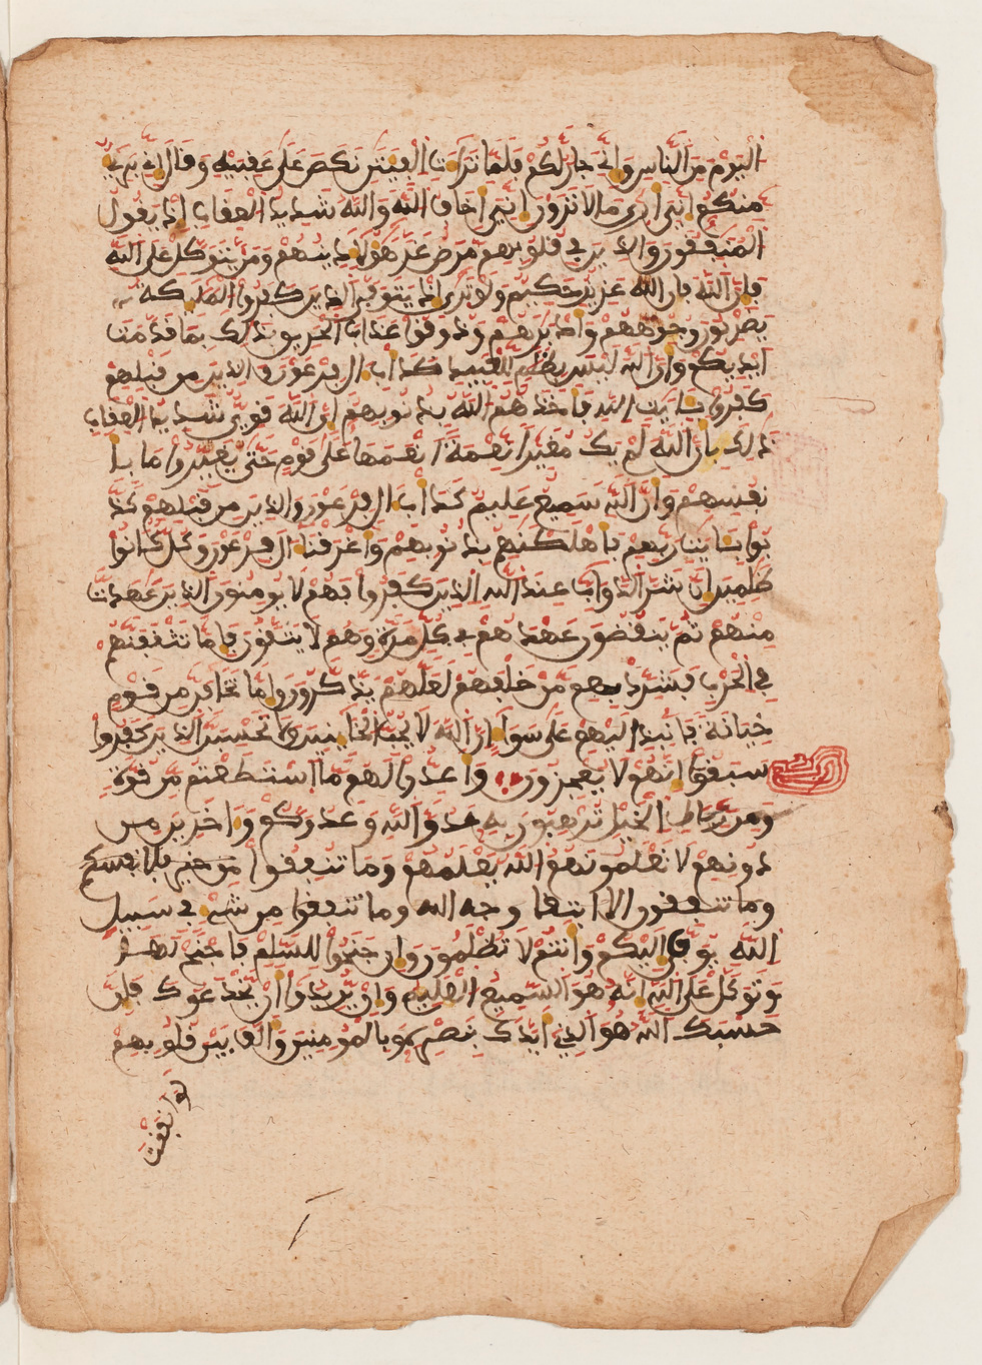 اليوم من الناس واني جار لكم فلما تراءت الفيتن نكص على عقبيه وقال اني بري
منكم اني ارى ما لا ترون اني اخاف الله والله شديد العقاب اذ يقول
المنفقون والذين في قلوبهم مرض غر هولا دينهم ومن يتوكل على الله
فان الله فان الله عزيز حكيم ولو ترى اذ يتوفى الذين كفروا المليكة
يضربون وجوههم وادبرهم وذوقوا عذاب الحريق ذلك بما قدمت
ايديكم وان الله ليس بظلم للعبيد كداب ال فرعون والذين من قبلهم
كفروا بايت الله فاخذهم الله بذنوبهم ان الله قوي شديد العقاب
ذلك بان الله لم يك مغيرا نعمة انعمها على قوم حتى يغيروا ما با
نفسهم وان الله سميع عليم كداب ال فرعون والذين من قبلهم كذ
بوا بايت ربهم فاهلكنهم بذنوبهم واغرقنا ال فرعون وكل كانوا
ظلمين ان شر الدواب عند الله الذين كفروا فهم لا يومنون الذين عهدت
منهم ثم ينقضون عهدهم في كل مرة وهم لا يتقون فاما تثقفنهم
في الحرب فشرد بهم من خلفهم لعلهم يذكرون واما تخافن من قوم
خيانة فانبذ اليهم على سوا ان الله لا يحب الخاينين ولا تحسبن الذين كفروا
سبقوا انهم لا يعجزون واعدوا لهم ما استطعتم من قوة
ومن رباط الخيل ترهبون به عدو الله وعدوكم واخرين من
دونهم لا تعلمونهم الله يعلمهم وما تنفقوا من خير فلانفسكم
وما تنفقون الا ابتغا وجه الله وما تنفقوا من شي في سبيل
الله يوف اليكم وانتم لا تظلمون وان جنحوا للسلم فاجنح لها
وتوكل على الله انه هو السميع العليم وان يريدوا ان يخدعوك فان
حسبك الله هو الذي ايدك بنصره وبالمومنين والف بين قلوبهم
لو انفقت